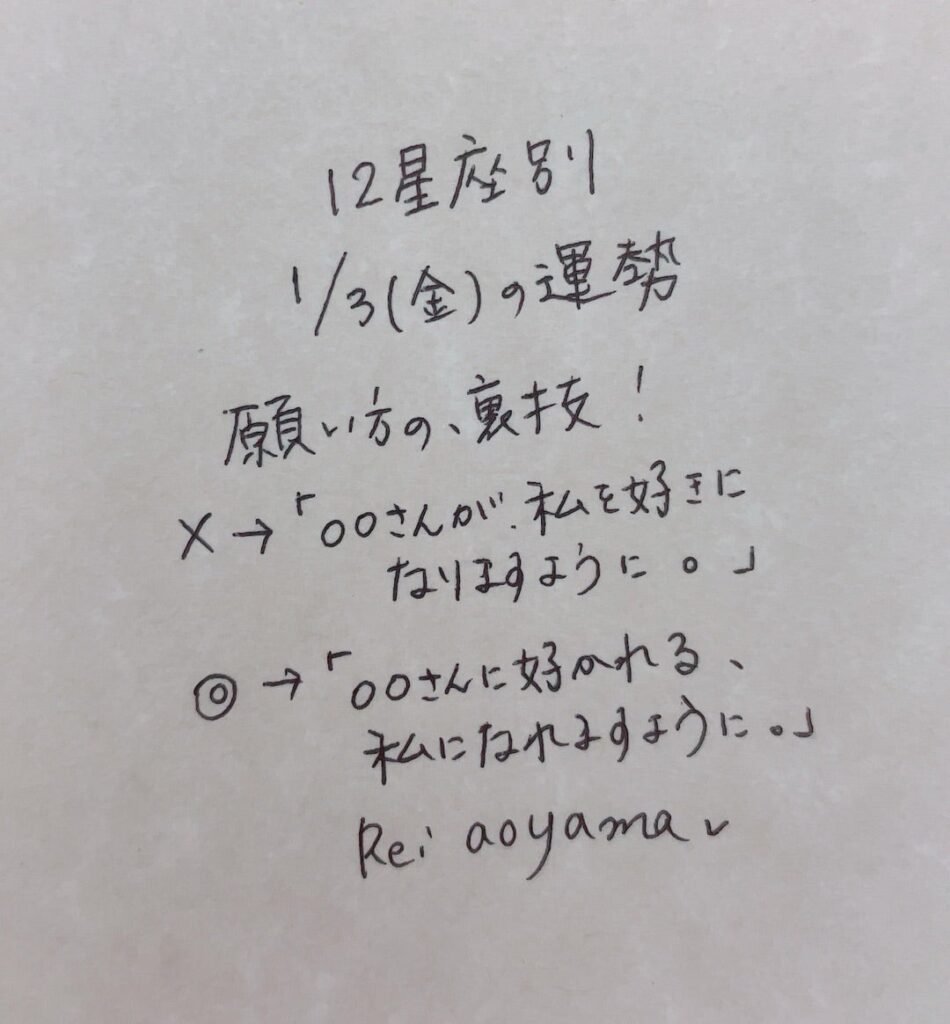 12星座別
1/3(金)の運勢
願い方の、裏技!
×→「○○さんが、私を好きに
なりますように。」
◎→「○○さんに好かれる、
私になれますように。」
Rei aoyama